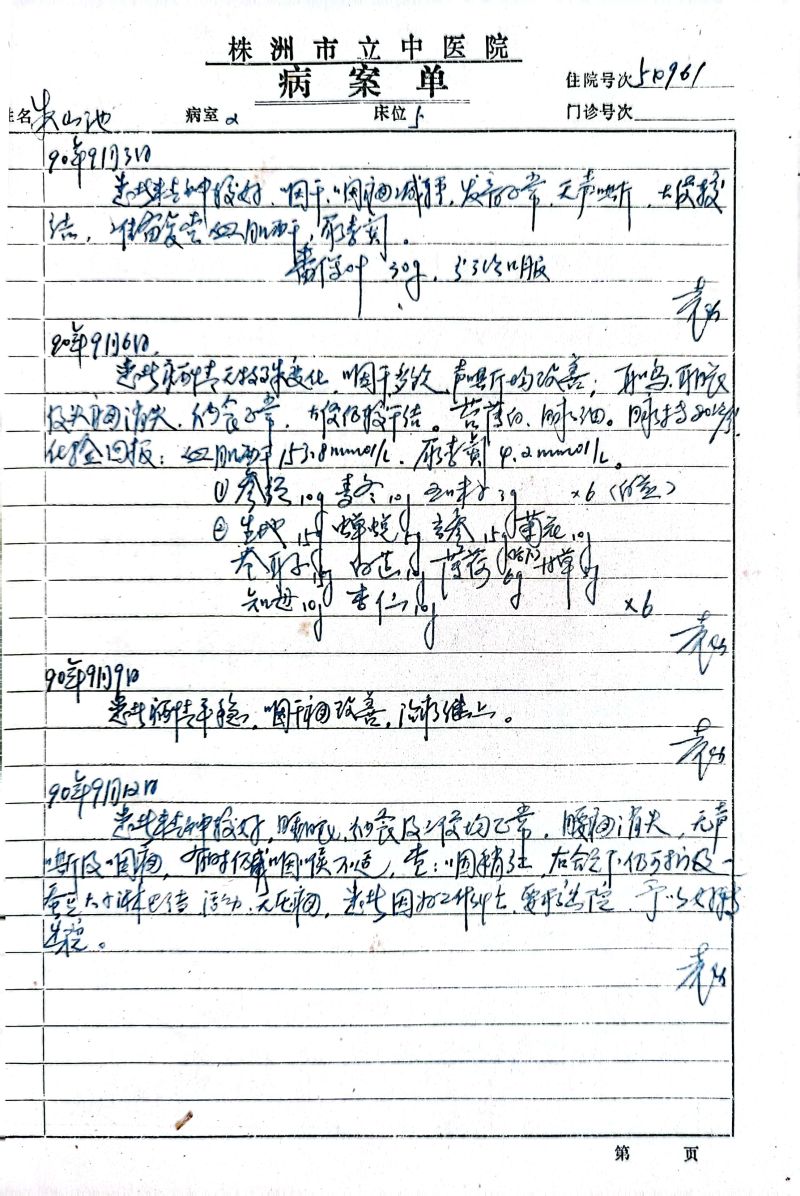 株洲市立中医院
病案单
住院号次510961
姓名 朱山池 病室2 床位5 门诊号次
90年9月3日
患者精神较好，咽干、咽痛减轻，发音正常，无声嘶，大便较
结，准备复查血肌酐，尿素氮。
番泻叶 30g，分3次口服
袁
90年9月6日
患者病情无特殊变化，咽干多饮，声嘶均改善，耳鸣、
及头痛消失，纳食正常，大便仍较干结。苔薄白，脉细。
化验回报：血肌酐153.8mmol/L，尿素氮4.2mmol/L。
① 10g 麦冬10g 五味子3g ×6
② 生地15g 蝉蜕5g 玄参15g 菊花10g
苍耳子10g 白芷10g 薄荷6g 甘草3g
知母10g 杏仁10g ×6
袁
90年9月9日
患者病情平稳，咽干痛改善，治疗继上。
袁
90年9月12日
患者精神较好，睡眠，纳食及二便均正常，腰痛消失，无声
嘶及咽痛，有时仍感咽喉不适，查：咽稍红，右颌下仍可扪及一
蚕豆大小淋巴结，活动，无压痛，患者因为工作，要求出院，予以好转
出院。
袁
第 页